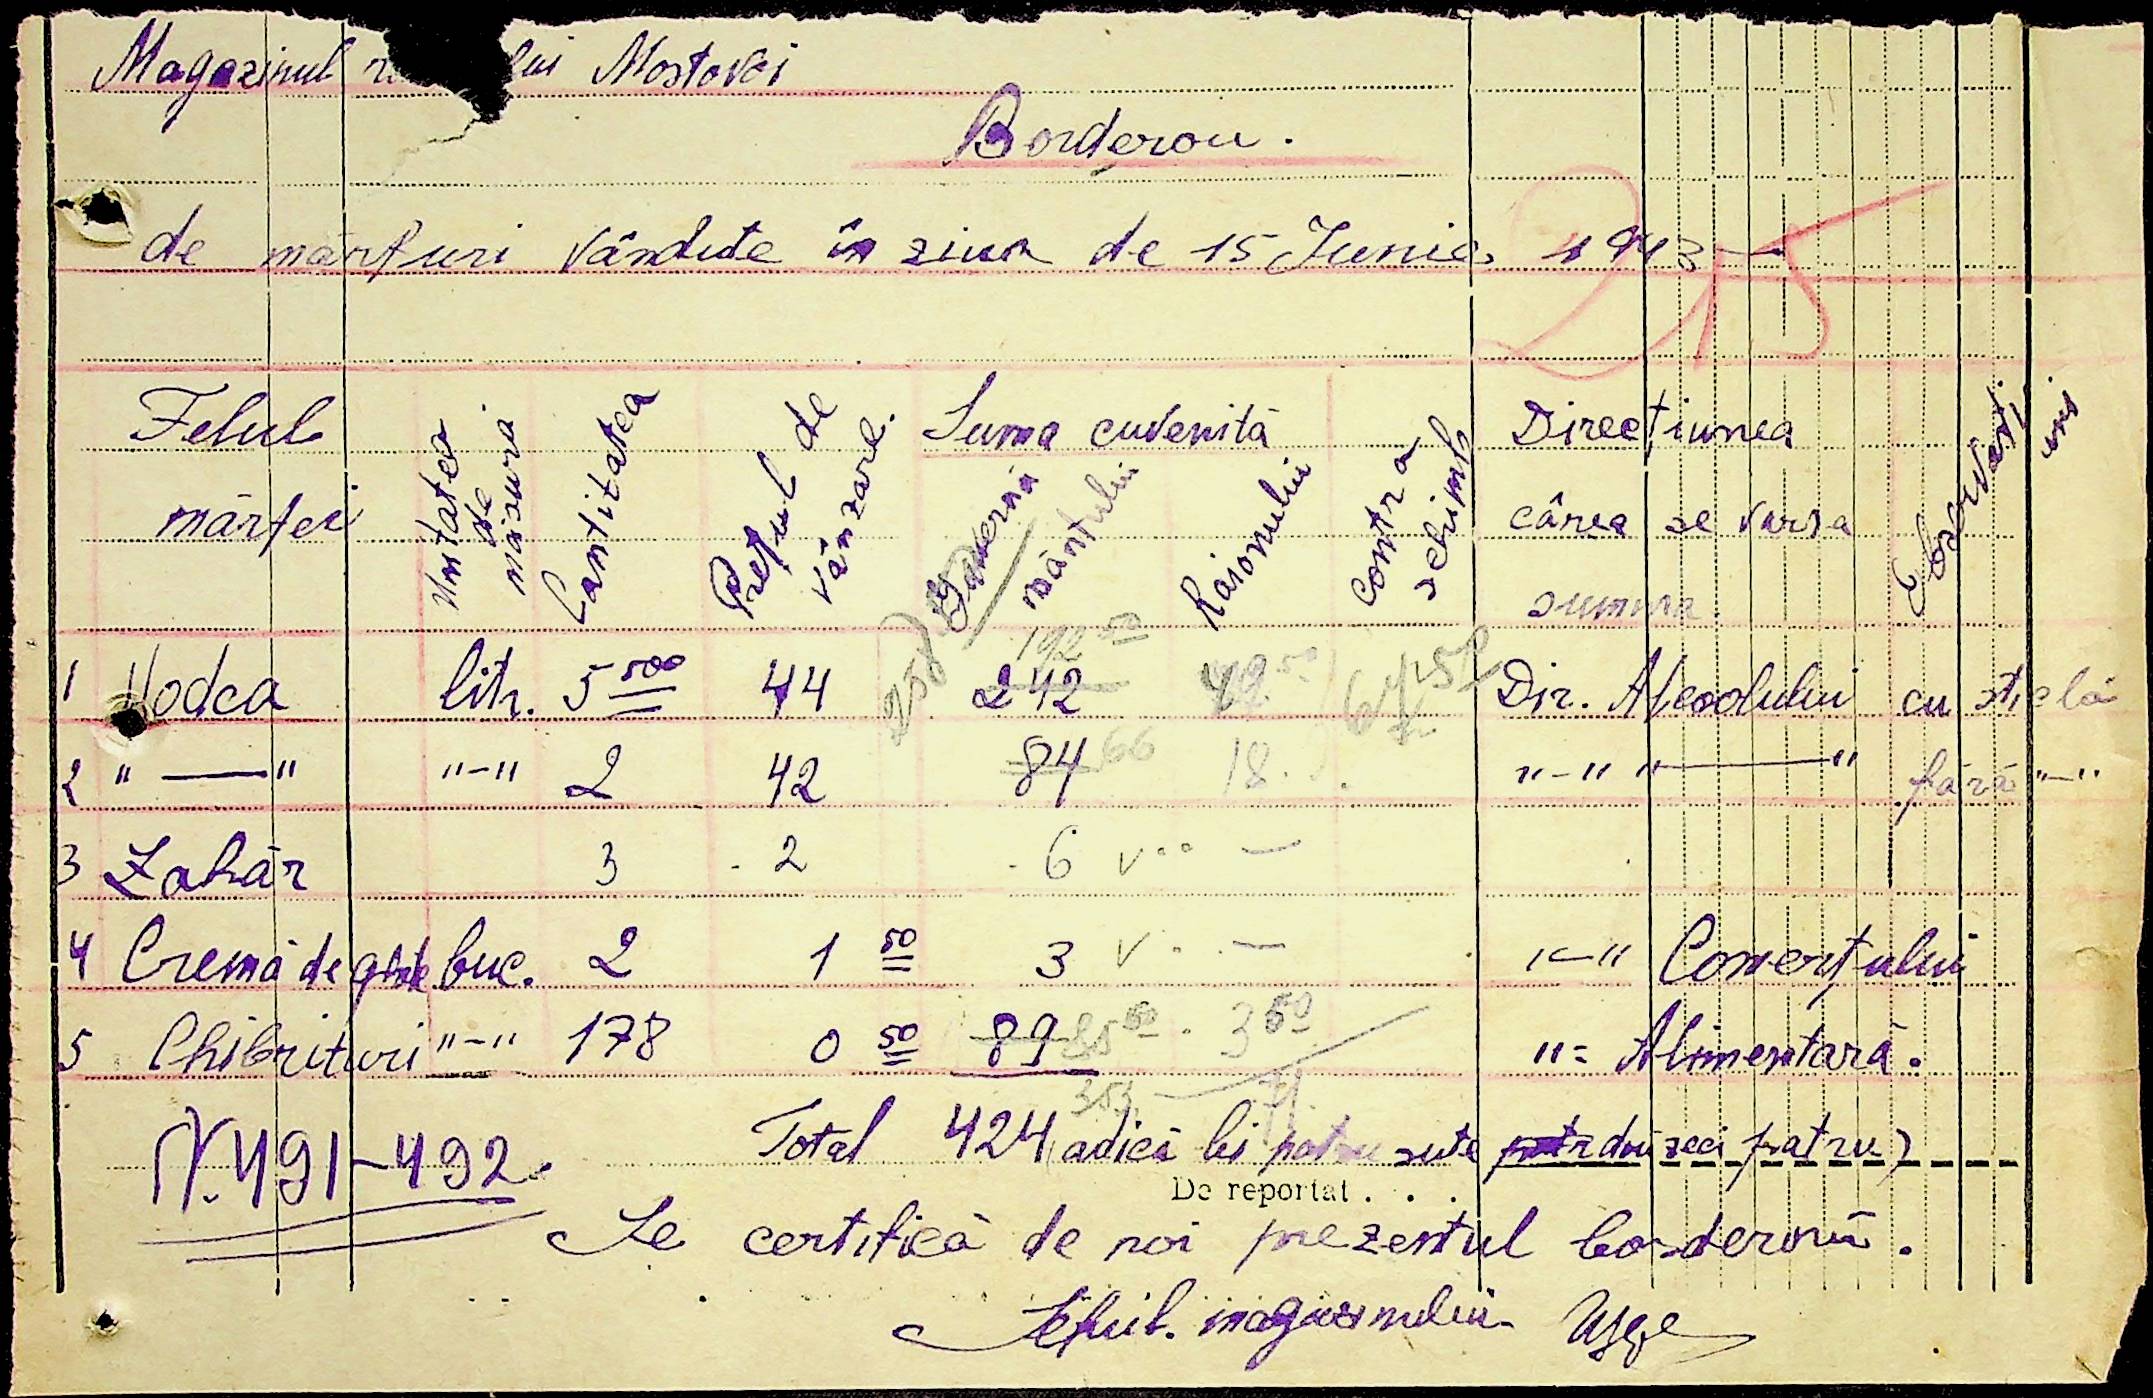 Magazinul lui Mostovoi
Borderou.
de mărfuri vândute în ziua de 15 Iunie 1943
215
Felul mărfei
Unitatea de măsura
Cantitatea
Prețul de vânzare.
Suma cuvenită
Guvernământului
Raionului
Contra schimb
Direcțiunea cărea se varsa summa
Observați uni
1 Vodca litr. 5 500 44 242 192 50 49 50 Dir. Alcoolului cu sticlă
2 "—" "—" 2 42 84 66 18. "—" "—" fără "—"
3 Zahăr 3 2 6 v —
4 Cremă de ghete buc. 2 1 50 3 v — "—" Comerțului
5 Chibrituri "—" 178 0 50 89 85 50 3 50 "= Alimentară.
353 71
N. 491-492
Total 424 adică lei patru sute două zeci patru)
De reportat . . .
Se certifică de noi prezentul borderoŭ.
Șeful. magazinului